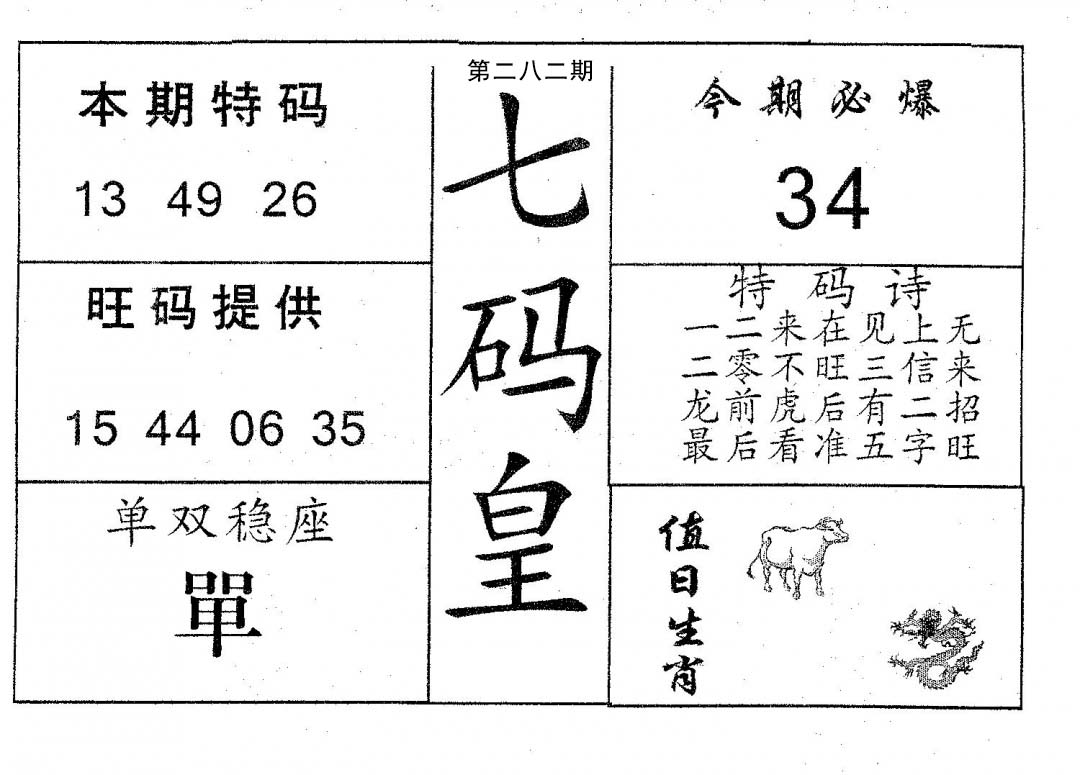 本期特码
13 49 26
旺码提供
15 44 06 35
单双稳座
單
第二八二期
七码皇
今期必爆
34
特码诗
一二来在见上无
二零不旺三信来
龙前虎后有二招
最后看准五字旺
值日生肖